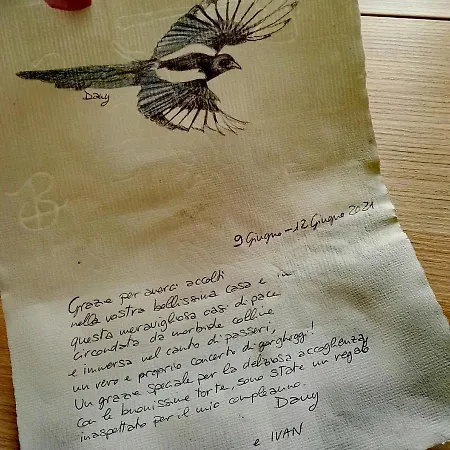 Dany
9 Giugno - 12 Giugno 2021
Grazie per averci accolti
nella vostra bellissima casa e in
questa meravigliosa oasi di pace
circondata da morbide colline
e immersa nel canto di passeri,
un vero e proprio concerto di gorgheggi!
Un grazie speciale per la deliziosa accoglienza,
con le buonissime torte, sono state un regalo
inaspettato per il mio compleanno.
Dany
e IVAN